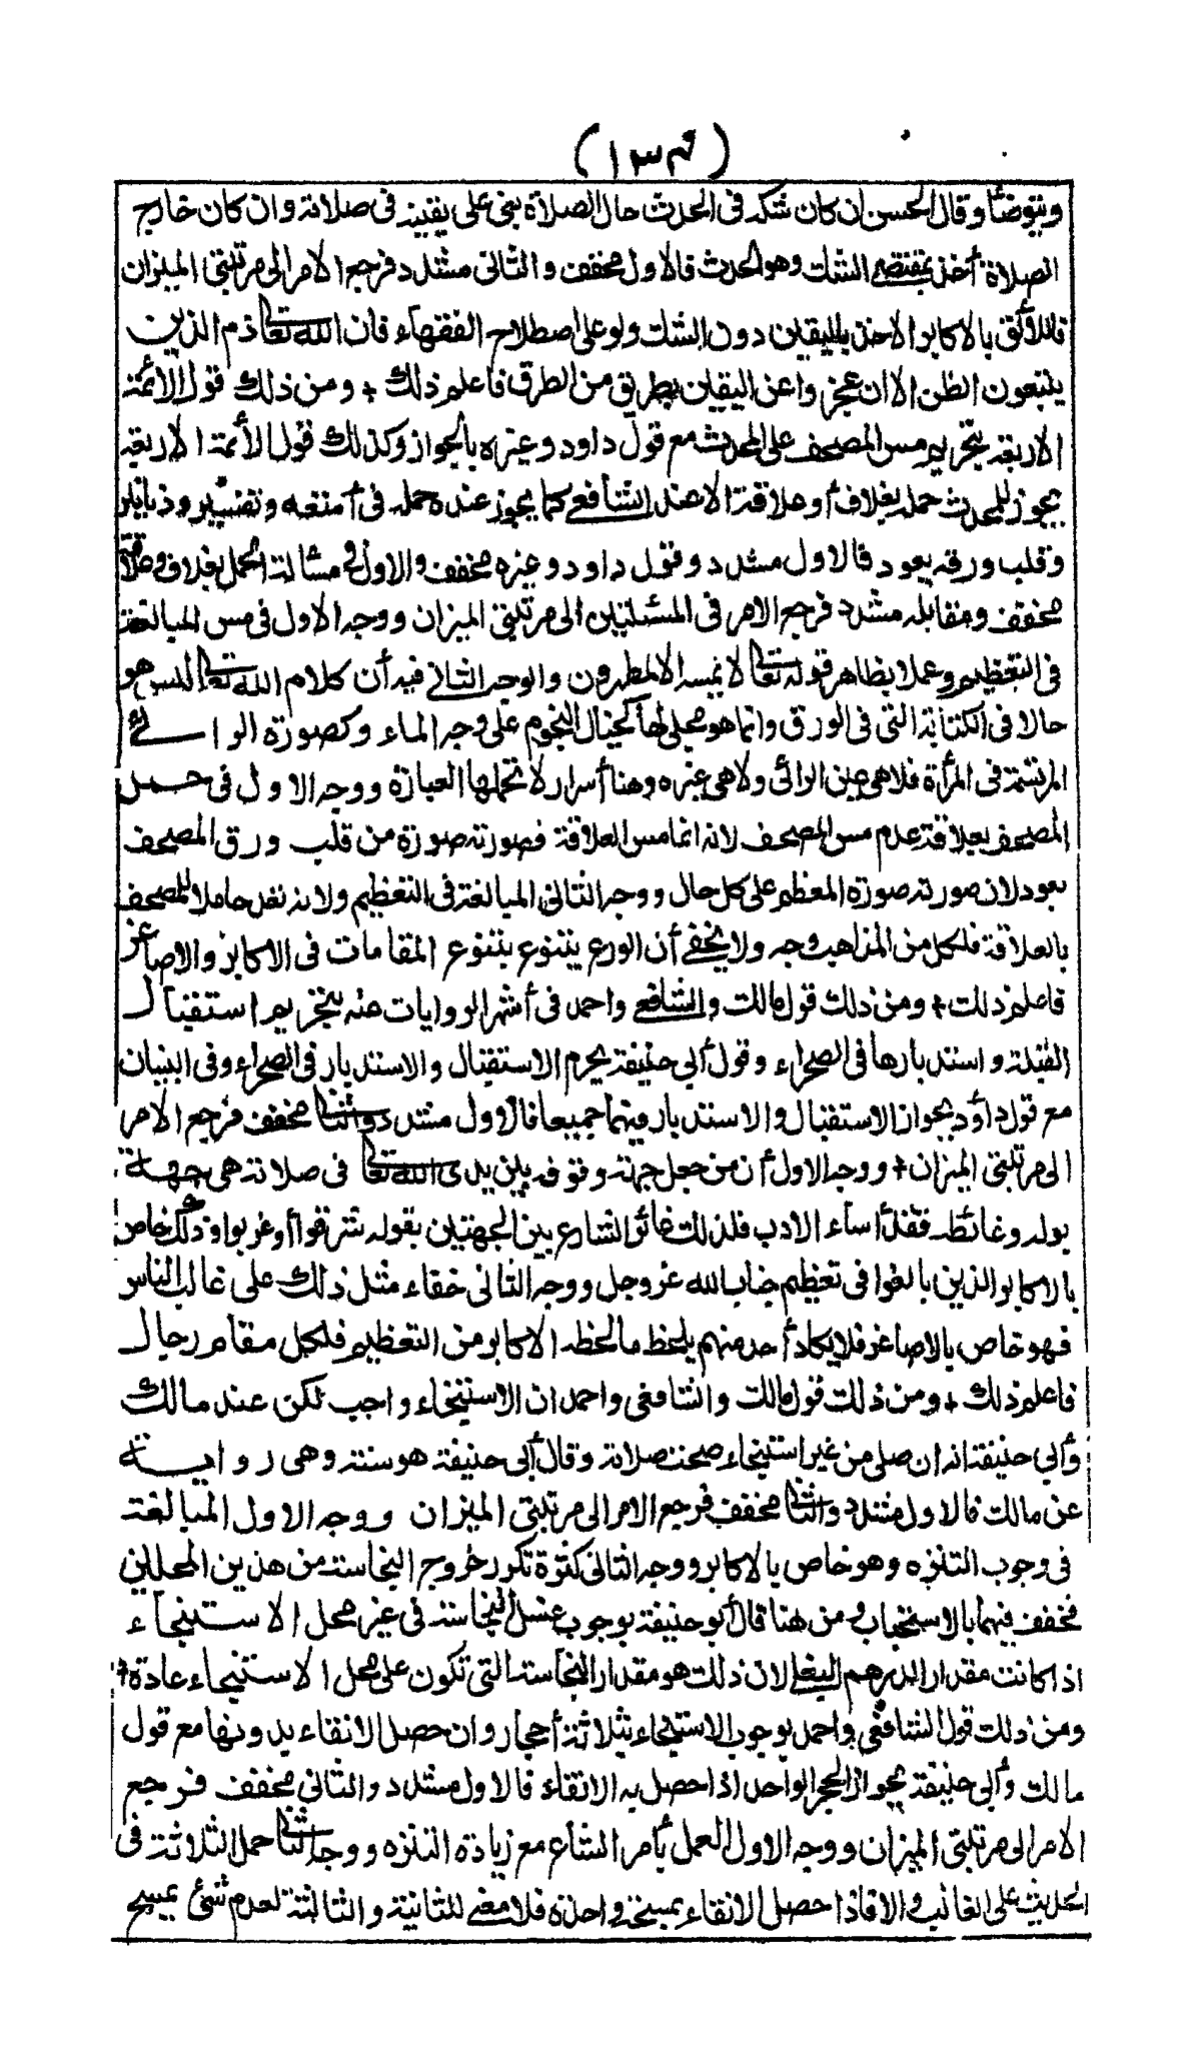 (١٣٤)
ويتوضأ وقال الحسن ان كان شكه فى الحدث حال الصلاة بنى على يقينه فى صلاته وان كان خارج
الصلاة أخذ بمقتضى الشك وهو الحدث فالاول مخفف والثانى مشدد فرجع الامر الى مرتبتى الميزان
فاللائق بالاكابر الاخذ باليقين دون الشك ولو على اصطلاح الفقهاء فان الله تعالى ذم الذين
يتبعون الظن الا ان عجزوا عن اليقين بطريق من الطرق فاعلم ذلك + ومن ذلك قول الائمة
الاربعة بتحريم مس المصحف على المحدث مع قول داود وغيره بالجواز وكذلك قول الأئمة الاربعة
يجوز للمحدث حمله بغلاف أو علاقة الا عند الشافعى كما يجوز عنده حمله فى أمتعة وتفسير ودنانير
وقلب ورقه بعود فالاول مشدد وقول داود وغيره مخفف والاول فى مسئالة الحمل بغلاف وعلاقة
مخفف ومقابله مشدد فرجع الامر فى المسئلتين الى مرتبتى الميزان ووجه الاول فى مس المبالغة
فى التعظيم وعملا بظاهر قوله تعالى لا يمسه الا المطهرون والوجه الثانى فيه أن كلام الله تعالى ليس هو
حالا فى الكتابة التى فى الورق وانما هو مجلى لها كخيال النجوم على وجه الماء وكصورة الرائى
المرتسمة فى المرآة فلا هى عين الرائى ولا هى غيره وهنا أسرار لا تحملها العبارة ووجه الاول فى حمل
المصحف بعلاقة عدم مس المصحف لانه انما مس العلاقة فصورته صورة من قلب ورق المصحف
بعود لان صورته صورة المعظم على كل حال ووجه الثانى المبالغة فى التعظيم ولانه نعل حاملا للمصحف
بالعلاقة فلكل من المذاهب وجه ولا يخفى أن الورع يتنوع بتنوع المقامات فى الاكابر والاصاغر
فاعلم ذلك + ومن ذلك قول مالك والشافعى واحمد فى أشهر الروايات عنه بتحريم استقبال
القبلة واستدبارها فى الصحراء وقول أبى حنيفة يحرم الاستقبال والاستدبار فى الصحراء وفى البنيان
مع قول داود بجواز الاستقبال والاستدبار فيهما جميعا فالاول مشدد والثانى مخفف فرجع الامر
الى مرتبتى الميزان + ووجه الاول أن من جعل جهة وقوفه بين يدى الله تعالى فى صلاته هى جهة
بوله وغائطه فقد أساء الادب فلذلك خالف الشارع بين الجهتين بقوله شرقوا أو غربوا وذلك خاص
بالاكابر الذين بالغوا فى تعظيم جناب الله عز وجل ووجه الثانى خفاء مثل ذلك على غالب الناس
فهو خاص بالاصاغر فلا يكاد أحد منهم يلحظ ما لحظه الاكابر من التعظيم فلكل مقام رجال
فاعلم ذلك + ومن ذلك قول مالك والشافعى واحمد ان الاستنجاء واجب لكن عند مالك
وأبى حنيفة انه ان صلى من غير استنجاء صحت صلاته وقال أبى حنيفة هو سنة وهى رواية
عن مالك فالاول مشدد والثانى مخفف فرجع الامر الى مرتبتى الميزان ووجه الاول المبالغة
فى وجوب التنزه وهو خاص بالاكابر ووجه الثانى كثرة تكرر خروج النجاسة من هذين المحلين
فخفف فيهما بالاستحباب ومن هنا قال أبو حنيفة بوجوب غسل النجاسة فى غير محل الاستنجاء
اذا كانت مقدار الدرهم البغلى لان ذلك هو مقدار النجاسة التى تكون على محل الاستنجاء عادة +
ومن ذلك قول الشافعى واحمد بوجوب الاستنجاء بثلاثة أحجار وان حصل الانقاء بدونها مع قول
مالك وأبى حنيفة بجواز الحجر الواحد اذا حصل به الانقاء فالاول مشدد والثانى مخفف فرجع
الامر الى مرتبتى الميزان ووجه الاول العمل بأمر الشارع مع زيادة التنزه ووجه الثانى حمل الثلاثة فى
الحديث على الغالب والا فاذا حصل الانقاء بمسحة واحدة فلا معنى للثانية والثالثة لعدم شئ يمسح